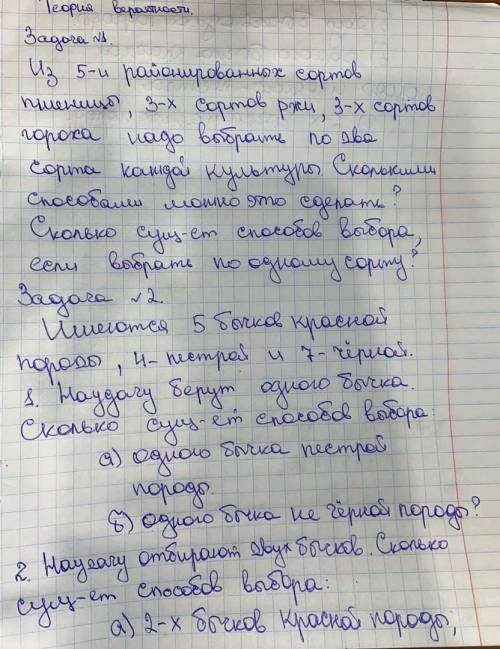 Теория вероятности.
Задача №1.
Из 5-и районированных сортов
пшеницы, 3-х сортов ржи, 3-х сортов
гороха надо выбрать по два
сорта каждой культуры. Сколькими
способами можно это сделать?
Сколько сущ-ет способов выбора,
если выбрать по одному сорту?
Задача №2.
Имеются 5 бычков красной
породы, 4-пестрой и 7-чёрной.
1. Наудачу берут одного бычка.
Сколько сущ-ет способов выбора:
а) одного бычка пестрой
породы.
б) одного бычка не чёрной породы?
2. Наудачу отбирают двух бычков. Сколько
сущ-ет способов выбора:
а) 2-х бычков красной породы;